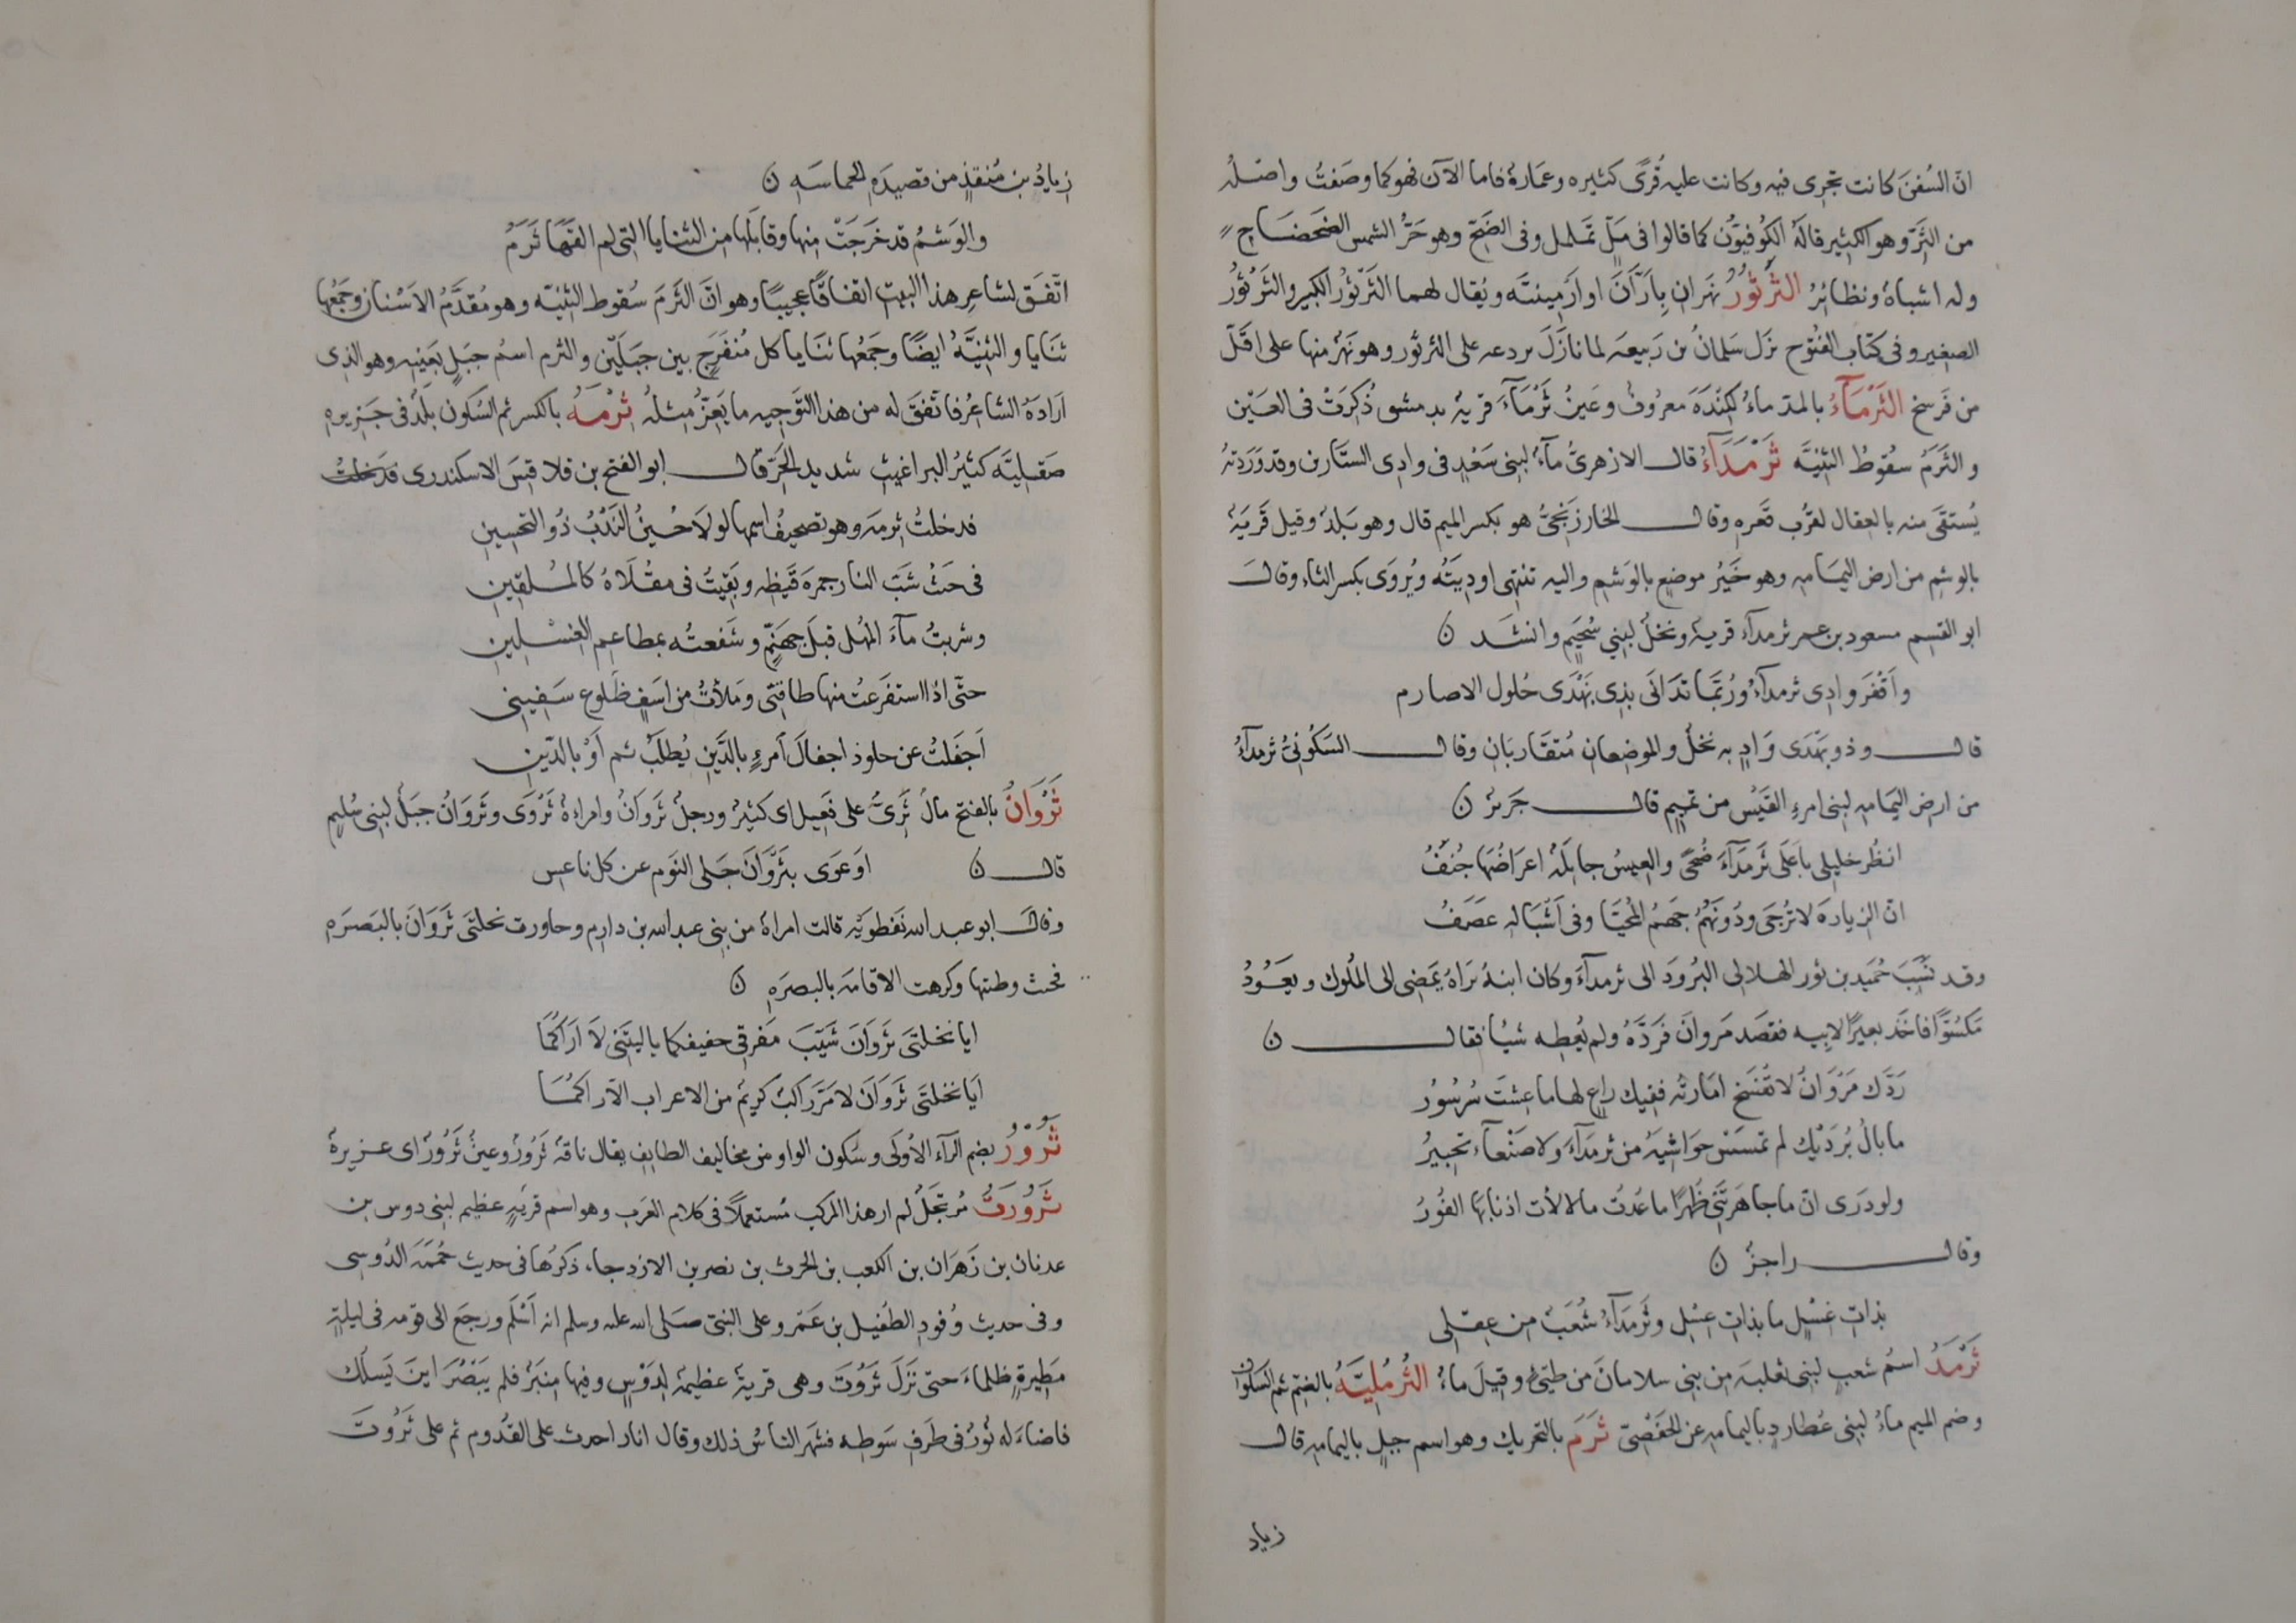 انّ السُفنَ كانت تجرى فيه وكانت عليه قُرًى كثيره وعمَارةٌ فاما الآن فهو كما وصَفتُ واصَلهُ
من الثَرّ وهو الكثِير قالهُ الكُوفيوُّن كما قالوا فى مَلّ تمَلمل وفى الضِّحّ وهو حَرُّ الشمس الضَحضَاح
وله اشباهٌ ونظائرُ الثَرْثُورُ نهَران بِارَّانَ او ارْمِينيَّه ويُقال لهما الثَرْثوُرُ الكبير والثَرْثوُرُ
الصغير وفى كتاب الفُتوُح نزَل سَلمانُ بن رَبيعه لما نازَلَ بردعه على الثرثور وهو نَهرٌ منها على اقلّ
من فَرسخ الثَرْمَآءُ بالمدّ ماءٌ لكِنْدَهَ معروُفٌ وعَينُ ثَرْمَآءَ قريةٌ بدمشق ذُكِرَتْ فى العَيْن
والثَرَمُ سقُوطُ الثنيَّه ثَرْمَدَآءُ قال الازهرىُّ مآءٌ لبنى سَعْدٍ فى وادِى السِتَارين وقد وَرَدتهُ
يُستقَى منه بالعِقال لقرُب قَعرِهِ وقال الخارزَنجىُّ هو بكسر الميم قال وهو بَلدٌ وقيل قَريَةٌ
بالوشِم من ارض اليمَامه وهو خَيْرُ موضِعٍ بالوَشم واليه تنتهى اودِيَتُه ويُروَى بكسر الثاء وقال
ابو القسِم مسعود بن عمر ثرمدآء قريةٌ ونخلٌ لبنِي سُحَيمٍ وانشَد ن
واَقْفَرَ وادِى ثرمدآءَ ورُبَّمَا تدَانَى بذِى بَهْدَى حُلول الاصارم
قال وذو بَهْدَى وَادٍ به نخلٌ والموضِعان مُتقَاربَانِ وقال السَكُونىُّ ثرمدآءُ
من ارض اليمَامه لبنى امرءِ القَيْس من تميم قال جَريْرٌ ن
انظُر خليلى باَعَلَى ثَرمَدَآءَ ضُحىً والعِيسُ جايَلَةٌ اعرَاضُهَا جُنفُ
انّ الزيارةَ لا تُرْجَى ودُونَهُمُ جَهمُ المُحيَّا وفى اَشْبَاله عَضَفُ
وقد نَسَبَ حُمَيد بن ثور الهلالى البُرودَ الى ثرمدآءَ وكان ابنهُ نراهُ يمَضِى الى المُلُوك ويعَوُدُ
مَكسُوًّا فاخذ بعيرًا لابيه فقصَد مَروانَ فَرَدَّهُ ولم يُعِطِه شيئا فقال ن
رَدّك مَرْوَانُ لا تفْسَخ امَارتُه ففِيك راعٍ لها ما عِشتَ سُرسُورُ
ما بالُ بُرَدْيك لم تمسَسْ حَوَاشِيَهُ من ثرمَدآءَ ولا صَنْعآء تحبِيرُ
ولو درَى انّ ما جاهَرَتَنِى ظُهرًا ما عُدتُ ما لالأت اذنابَهَا الفُورُ
وقال راجزٌ ن
بذاتِ غسْلٍ ما بذاتِ غسْلِ وثَرمَدَآءُ شُعَبٌ من عِقلى
ثَرْمَدُ اسمُ شعبٍ لبنى ثعلبه من بنى سلامانَ من طيّئ وقيلَ ماءٌ الثُرْمُلِيَّهُ بالضِّم ثم السكون
وضم الميم ماءٌ لبنى عُطاردٍ باليمامه عن الحَفْصِىّ ثَرَم بالتحريك وهو اسم جبلٍ باليمامه قال
زياد
زيادُ بن مُنقذٍ من قصيدَهِ الحماسَهِ ن
والوَشمُ قد خَرجَتْ مِنها وقابَلَها من الثنايا التى لم القهَا ثَرَمُ
اتّفَق لشاعِر هذا البيتِ اتفاقًا عجيبًا وهو انّ الثرَم سُقوط الثنِيّه وهو مُقدَّمُ الاَسْنان وجَمْعُها
ثنَايا والثِنيَّهُ ايضًا وجَمعُها ثنَايا كل مُنفَرجٍ بين جبَليْن والثرم اسمُ جبَلٍ بعَينهِ وهو الذِى
ارَادَهُ الشاعِرُ فاتفَقَ له من هذا التوجيه ما يَعَزُّ مِثلهُ ثِرْمَهُ بالكسر ثم السُكون بلَدٌ فى جَزيرهِ
صَقليَّه كثيرُ البراغيثِ شديد الحَرّ قال ابو الفتح بن قلاقسَ الاسكندرى قدخلتُ
قد خلتُ ثِرمهَ وهو تصحيفُ اسمها لولا حُسِينُ النَدْبُ ذُو التحسِينِ
فى حَثُ شبّ النار جمرهَ قَيظِه وبَقيِتُ فى مقْلَاهُ كالمسْلقِينِ
وشربتُ مآءَ المُهل قبلَ جَهنَّمٍ وشَفعتُه بمطاعِم الغسْلِينِ
حتّى اذا استفرَعتْ منها طاقتِى ومَلأتُ من اسَفٍ ظَلوع سَفِينِى
اَجفَلتُ عن حلوذ اجفالَ اَمرءٍ بالدَّينِ يُطلَبُ ثم اَوْ بالدّينِ
ثَرْوَانُ بالفتح مالٌ ثَرىٌّ على فعيل اى كثيرٌ ورجلٌ ثَروَانُ وامراةٌ ثَرْوَى وثَروَانُ جبَلٌ لبنى سُليم
قال ن اوعَوَى بثَرْوَانَ جَلى النوَم عن كل ناعس
وقال ابو عبد الله نفطوَيْه قالت امراةٌ من بنى عبد الله بن دارم وحاورت نخلتَى ثَرَوَانَ بالبَصرَهِ
فحنت وطنها وكرهت الاقامه بالبصرَهِ ن
ايا نخلتَى ثَرْوَانَ شَيّبَ مَفرقِى حفيفكما يا ليتَنى لَا اَراكُمَا
اَيا نخلتَى ثَرَوَانَ لا مَرَّ راكبٌ كريمٌ من الاعراب الّا راكمُا
ثَرُوْرُ بضم الرّآء الأولَى وسُكون الواو من مخاليف الطايِف يقال ناقهٌ ثَرُوُرٌ وعينٌ ثَرُورٌ اى عزيرةٌ
ثَرُورَتُ مُرتجَلٌ لم ار هذا المركب مُستعملًا فى كلام العَرب وهو اسم قريهٍ عظيم لبنى دوس بن
عدنان بن زَهرَان بن الكعب بن الحرث بن نصر بن الازد جاء ذكرُها فى حديث حُممَهَ الدُوسِى
وفى حديث وُفودِ الطُفيل بن عَمرو على النبىّ صَلى الله عليه وسلم انه اَسْلَمَ ورجعَ الى قومه فى ليلهٍ
مَطيرةٍ ظلماءَ حتى نَزَلَ ثَرُوْتَ وهى قريةٌ عظيمةٌ لِدَوْسٍ وفيها مِنبَرٌ فلم يَبْصُرَ اينَ يَسلُك
فاضاءَ له نُورٌ فى طَرفِ سَوطهِ فشهر الناسُ ذلك وقال انار احرث على القُدُوم ثم على ثَرْوُتَ